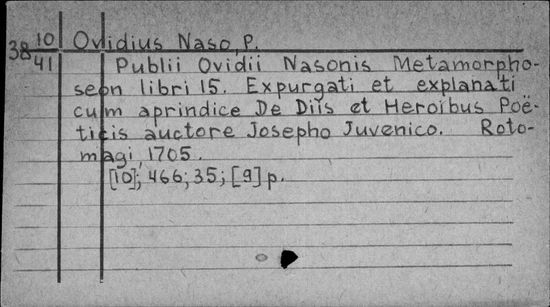 38 10/41 Ovidius Naso, P.
Publii Ovidii Nasonis Metamorpho-
seon libri 15. Expurgati et explanati
cum aprindice De Diis et Heroibus Poë-
ticis auctore Josepho Juvenico. Roto-
magi, 1705.
[10]; 466; 35; [9] p.